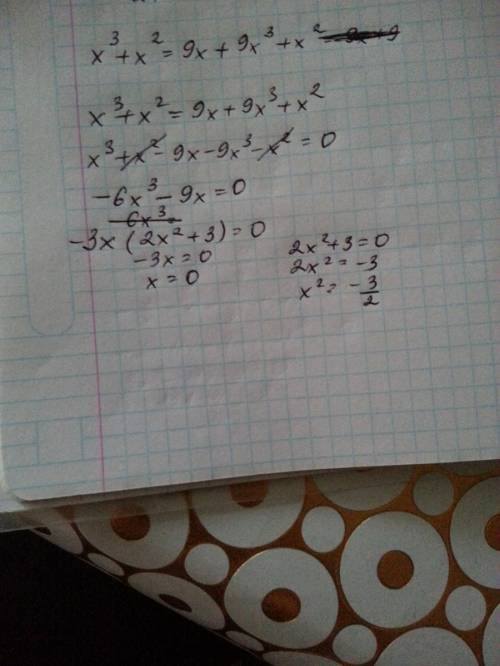 x³+x² = 9x+9x³+x² = 9x+9
x³+x² = 9x+9x³+x²
x³+x²-9x-9x³-x² = 0
-6x³-9x=0
6x³=
-3x(2x²+3)=0
-3x=0
x=0
2x²+3=0
2x²=-3
x²=-3/2